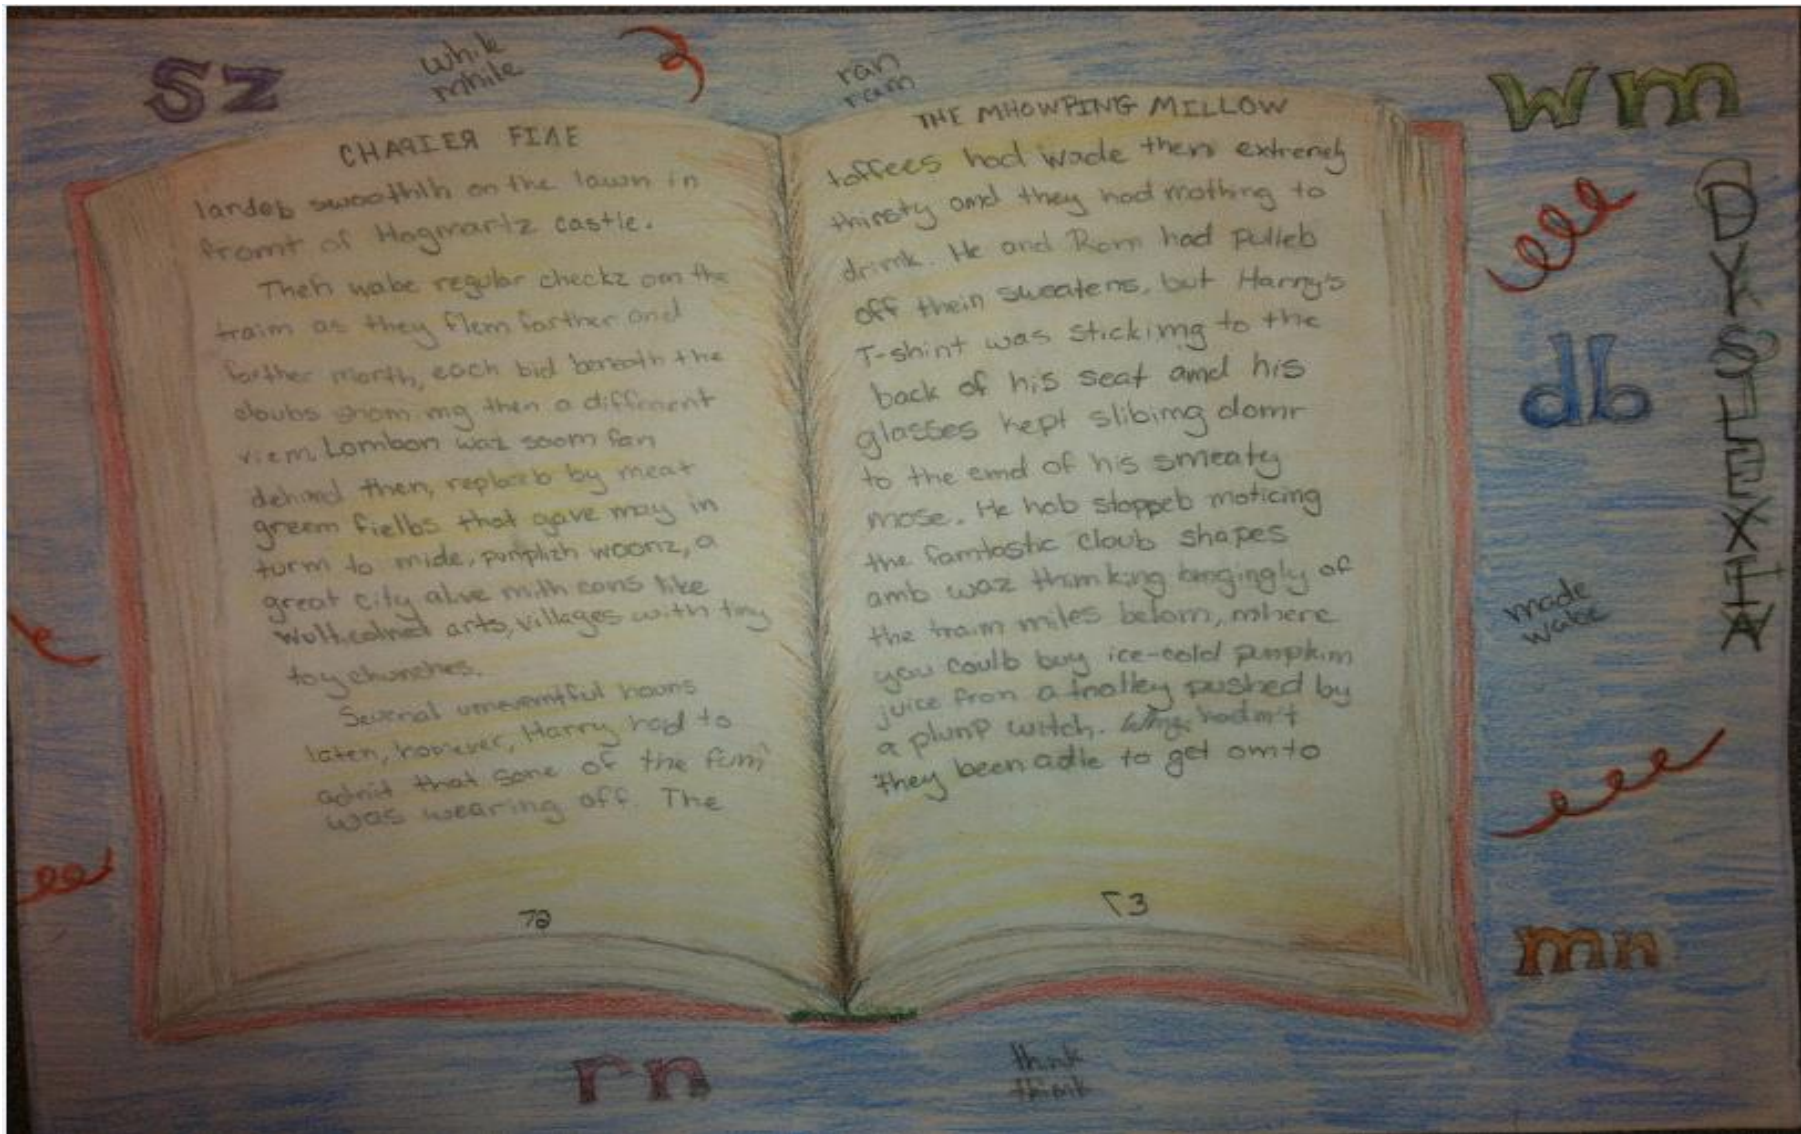 Sz
while
mhite
ran
ram
wm
CHAPIER FIVE
landeb swoothlh on the lawn in
fromt of Hogmartz castle.
Theh wabe regular checkz om the
traim as they flem farther and
farther morth, each bid beneath the
cloubs them a different
viem. Lombon waz soom fan
dehind then, replaceb by meat
greem fielbs that gave may in
turm to mide, punplizh woonz, a
great city alive mith cans like
arts, villages with tiny
toy chunches.
Sevenal umeventful houns
laten, homever, Harry had to
adnit that sone of the fum
was wearing off. The
72
THE MHOWPING MILLOW
toffees had wade them extremely
thinsty amd they had mothing to
drimk. He and Rom had pulleb
off thein sweatens, but Harny's
T-shint was stickimg to the
back of his seat amd his
glasses kept slibimg domr
to the emd of his smeaty
mose. He hab stoppeb moticing
the famtastic cloub shapes
amb waz thimking longingly of
the traim miles belom, mhere
you coulb buy ice-cold pumpkim
juice fron a tnolley pushed by
a plunp witch. hadm't
they been adle to get omto
73
DYSLEXIA
db
made
wabe
mn
rn
think
thimk